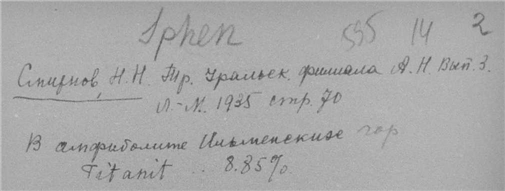 Sphen 595 14 2
Смирнов, Н.Н. Тр. Уральск. филиала А.Н. Вып. 3.
Л.-М. 1935 стр. 70
В амфиболите Ильменских гор
Titanit .. 8.85%.